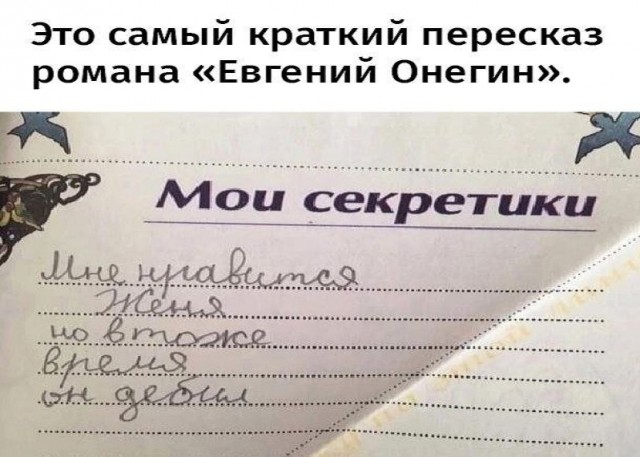 Это самый краткий пересказ
романа «Евгений Онегин».
Мои секретики
Мне нравится
Женя
но втоже
время
он дебил